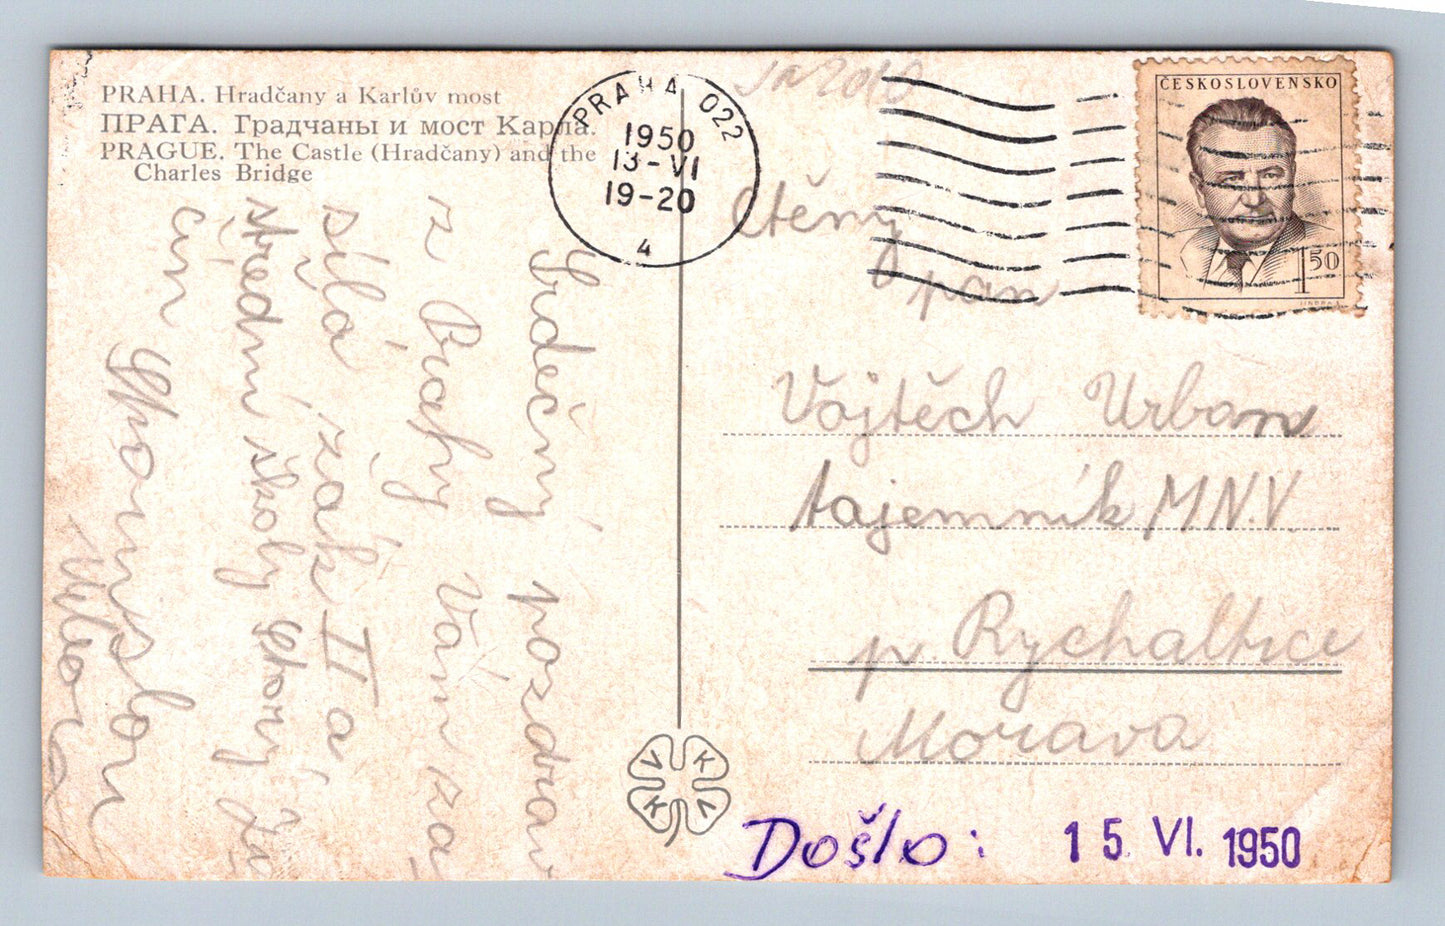 PRAHA. Hradčany a Karlův most
ПРАГА. Градчаны и мост Карла.
PRAGUE. The Castle (Hradčany) and the
Charles Bridge
Srdečný pozdrav
z Prahy Vám za-
sílá žák II a
střední školy
Urban
PRAHA 022
1950
13-VI
19-20
4
ČESKOSLOVENSKO
1 50
Ctěný
pan
Vojtěch Urban
tajemník M.N.V.
p. Rychaltice
Morava
V K V K
Došlo: 15. VI. 1950